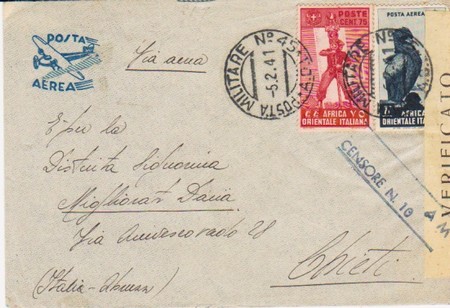 POSTA
AEREA
Via aerea
POSTE
CENT. 75
AFRICA
ORIENTALE ITALIANA
POSTA AEREA
AFRICA
ORIENTALE ITALIANA
POSTA MILITARE No
-5.2.41
POSTA MILITARE No
CENSORE N. 10
VERIFICATO
per la
Distinta Signorina
Via 28
Chieti
(Italia -